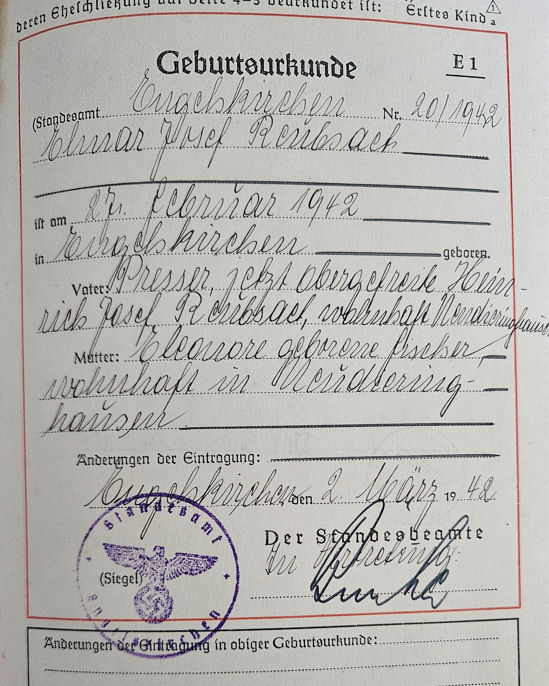 deren Eheschließung auf Seite 4–5 beurkundet ist: Erstes Kind a
Geburtsurkunde E 1
(Standesamt Engelskirchen Nr. 20/1942
Elmar Josef Reubsach
ist am 27. Februar 1942
in Engelskirchen geboren.
Vater: Presser, jetzt Obergefreite Hein-
rich Josef Reubsach, wohnhaft
Mutter: Eleonore geborene Fischer,
wohnhaft in
hausen
Änderungen der Eintragung:
Engelskirchen den 2. März 1942
Der Standesbeamte
In Vertretung
(Siegel)
Standesamt
Engelskirchen
Änderungen der Eintragung in obiger Geburtsurkunde: